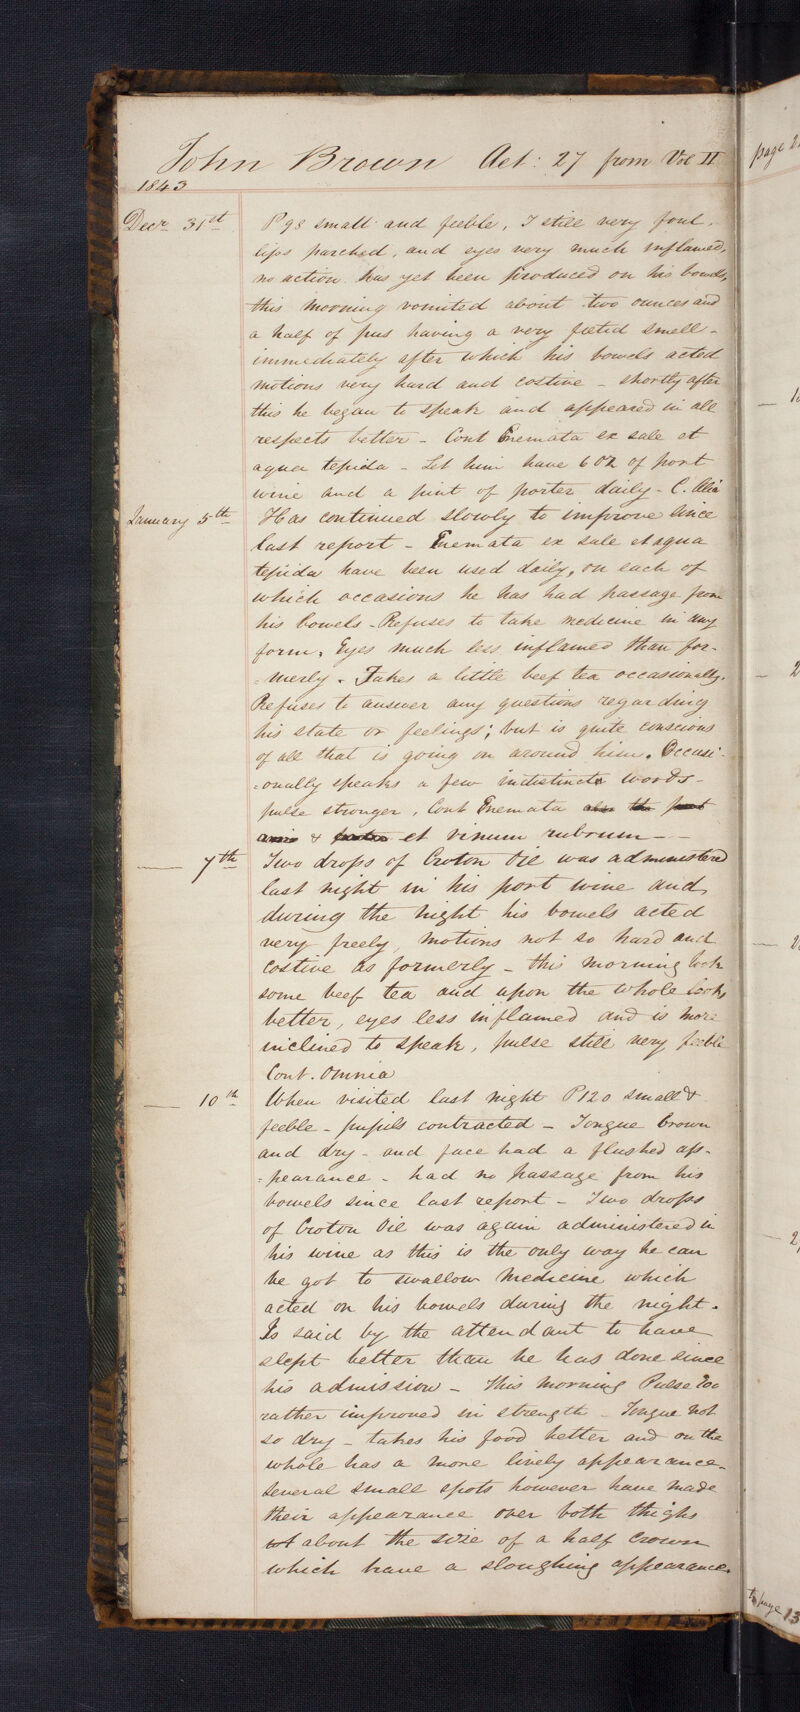 John Brown Aet: 27 from Vol II
1843
Decr 31st P 98 small and feeble, T still very foul,
lips parched, and eyes very much inflamed,
no action has yet been produced on his bowels,
this morning vomited about two ounces and
a half of pus having a very foetid smell -
immediately after which his bowels acted
motions very hard and costive - shortly after
this he began to speak and appeared in all
respects better - Cont Enemata ex sale et
aqua tepida - Let him have 6 oz of port
wine and a pint of porter daily - C. Alia
January 5th Has continued slowly to improve since
last report - Enemata ex sale et aqua
tepida have been used daily, on each of
which occasions he has had passage from
his bowels - Refuses to take medicine in any
form. Eyes much less inflamed than for-
=merly. Takes a little beef tea occasionally.
Refuses to answer any questions regarding
his state or feelings; but is quite conscious
of all that is going on around him. Occasi-
=onally speaks a few indistinct words -
pulse stronger, Cont Enemata also the port
wine & porter et vinum rubrum - -
— 7th Two drops of Croton Oil was administered
last night in his port wine and
during the night his bowels acted
very freely, motions not so hard and
costive as formerly - this morning took
some beef tea and upon the whole looks
better, eyes less inflamed and is more
inclined to speak, pulse still very feeble
Cont. Omnia
— 10th When visited last night P 120 small &
feeble - pupils contracted - Tongue brown
and dry - and face had a flushed ap-
=pearance - had no passage from his
bowels since last report - Two drops
of Croton Oil was again administered in
his wine as this is the only way he can
be got to swallow medicine which
acted on his bowels during the night.
Is said by the attendant to have
slept better than he has done since
his admission - This morning Pulse 100
rather improved in strength - Tongue not
so dry - takes his food better and on the
whole has a more lively appearance -
Several small spots however have made
their appearance over both thighs
about the size of a half crown
which have a sloughing appearance.
page
to page 13